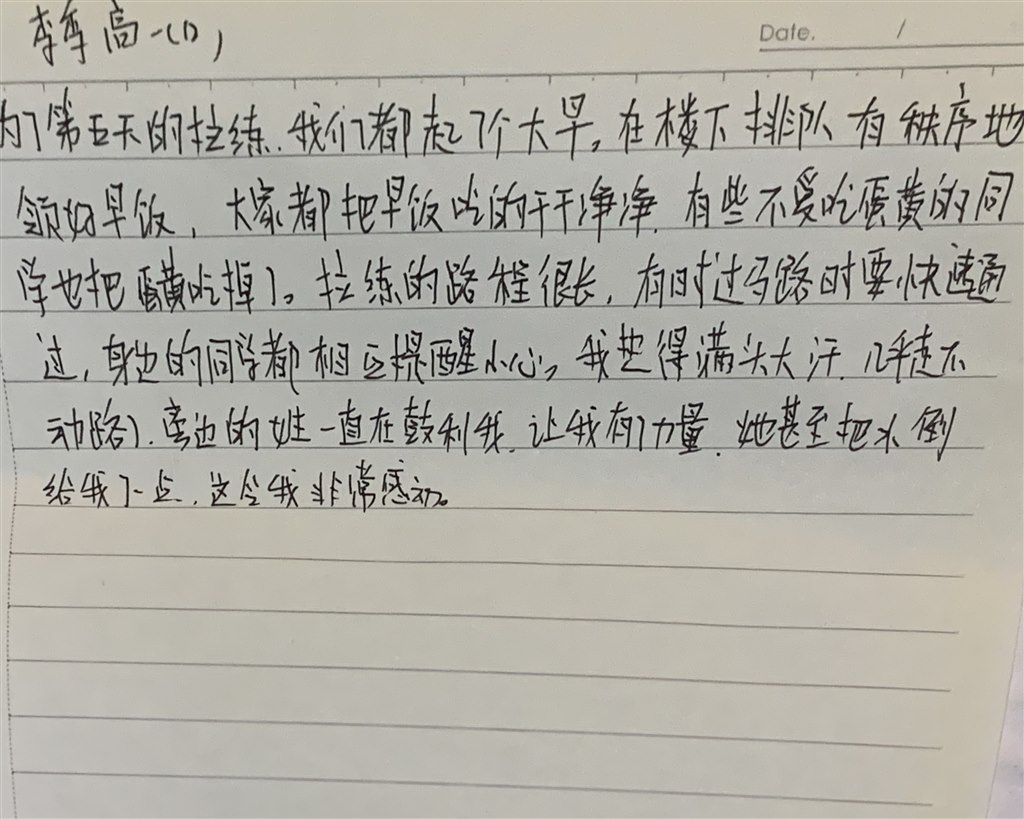 高一(1)
Date. /
为了第五天的拉练，我们都起了个大早。在楼下排队有秩序地
领好早饭，大家都把早饭吃的干干净净，有些不爱吃蛋黄的同
学也把蛋黄吃掉了。拉练的路程很长，有时过马路时要快速通
过，身边的同学都相互提醒小心，我热得满头大汗，几乎走不
动路了。旁边的女生一直在鼓利我，让我有了力量，她甚至把水倒
给我了一点，这令我非常感动。